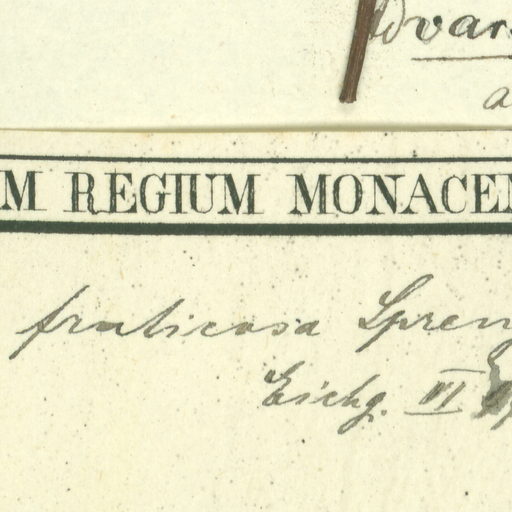 var.
a
M REGIUM MONACEN
fruticosa Spreng
Eichg. VI